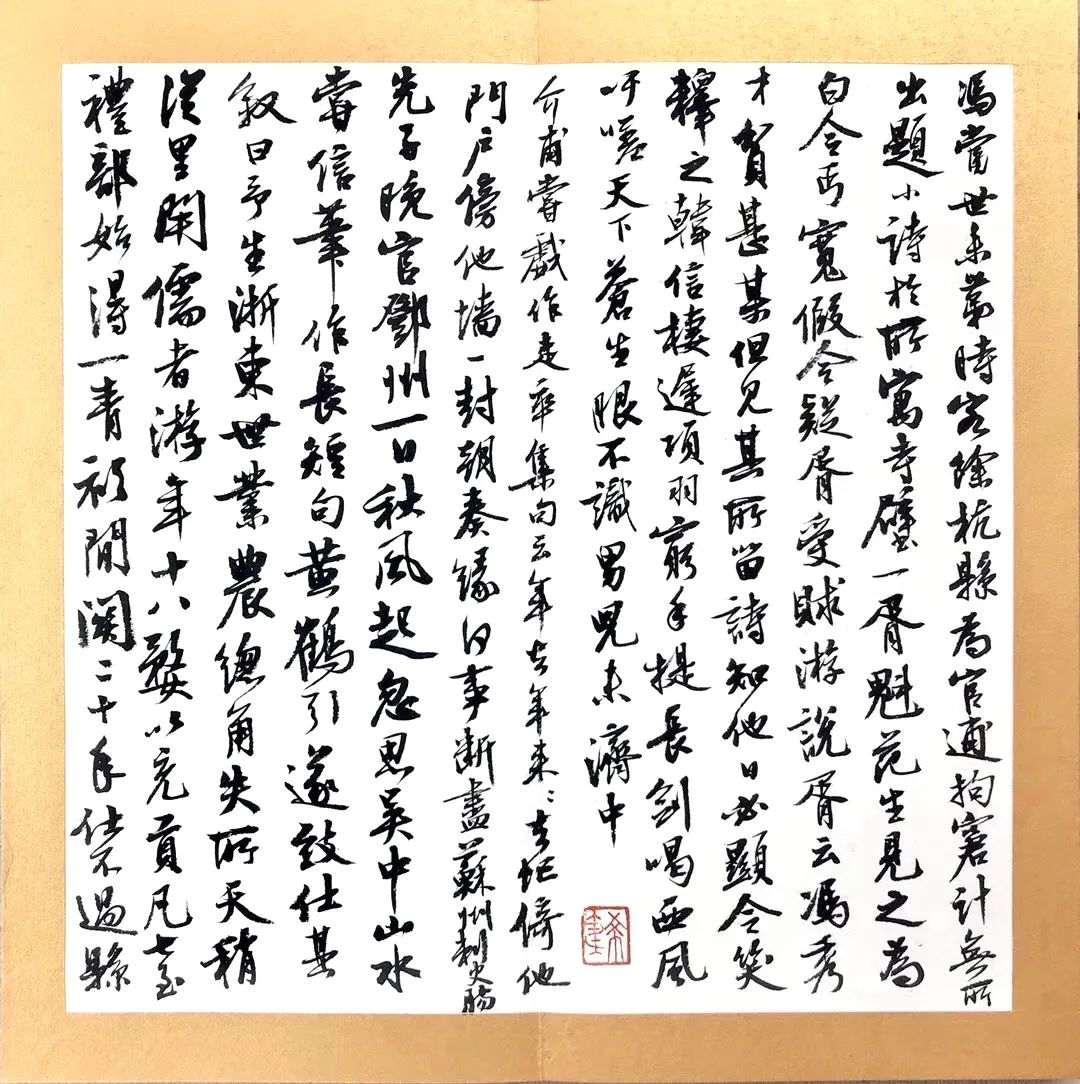 馮當世未第時客餘杭縣為官逋拘窘計無所
出題小詩於所寓寺壁一胥魁范生見之為
白令丐寬假令疑胥受賕游說胥云馮秀
才貧甚某但見其所留詩知他日必顯令笑
釋之韓信棲遲項羽窮手提長劍喝西風
吁嗟天下蒼生眼不識男兒未濟中
介甫嘗戲作走卒集句云年去年來來去忙倚他
門戶傍他墻一封朝奏緣何事斷盡蘇州刺史腸
先子晚官鄧州一日秋風起忽思吳中山水
嘗信筆作長短句黃鶴引遂致仕其
敘曰予生浙東世業農總角失所天稍
從里閈儒者游年十八婺以充貢凡七至
禮部始得一青衫間關二十年仕不過縣